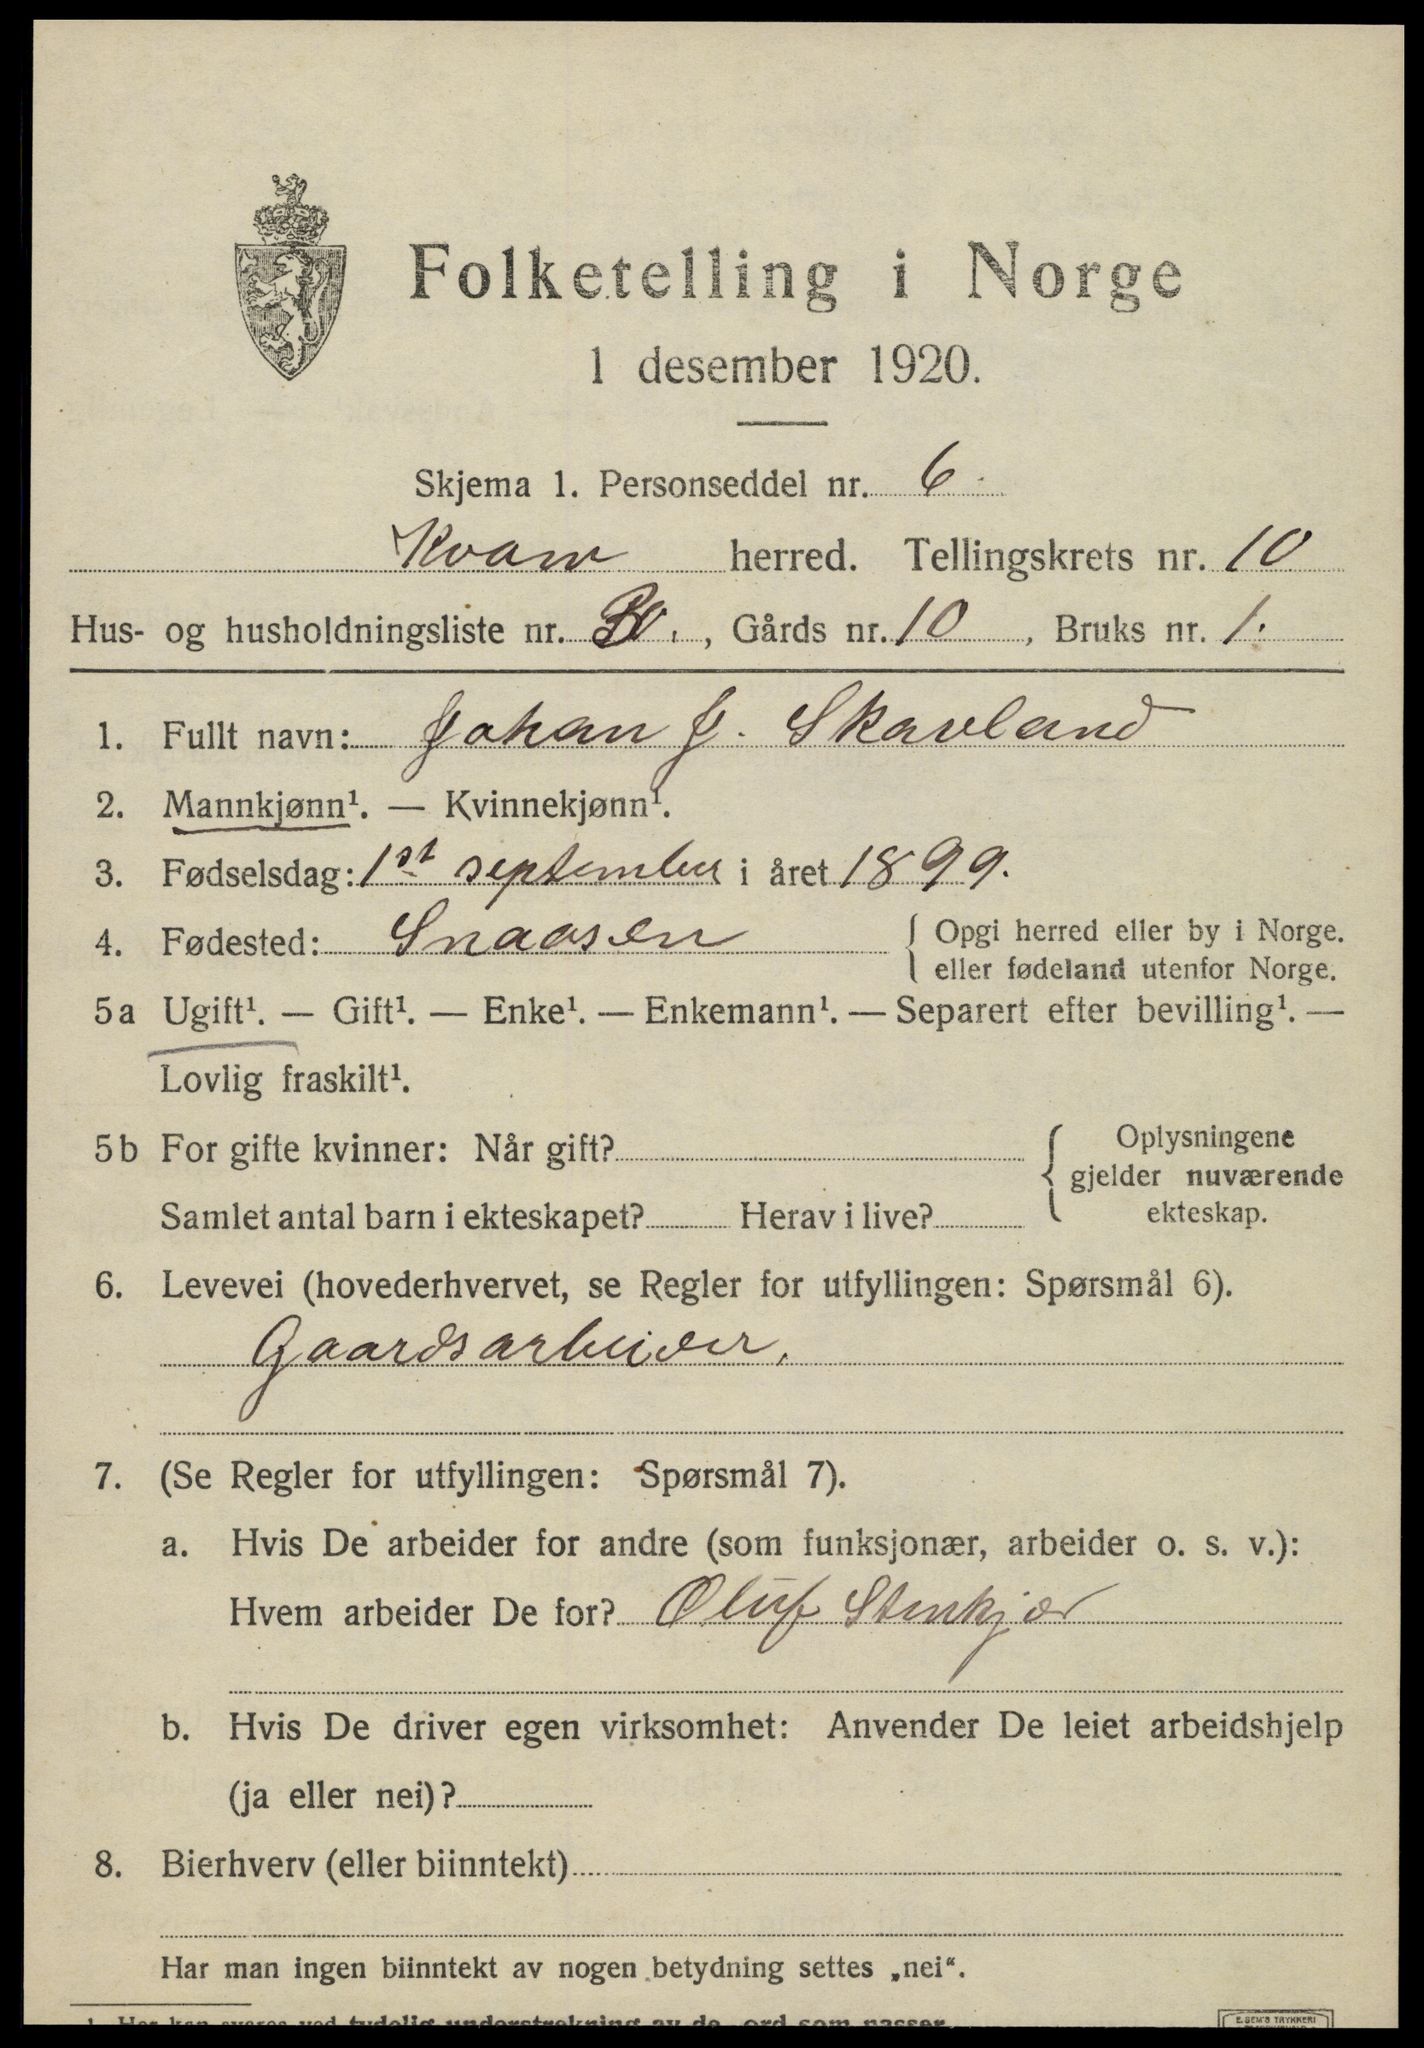 Folketelling i Norge
1 desember 1920.
Skjema 1. Personseddel nr. 6.
Kvam herred. Tellingskrets nr. 10
Hus- og husholdningsliste nr. , Gårds nr. 10 , Bruks nr. 1.
1. Fullt navn: Johan J. Skavland
2. Mannkjønn¹. — Kvinnekjønn¹.
3. Fødselsdag: 1st september i året 1899.
4. Fødested: Snaasen { Opgi herred eller by i Norge.
eller fødeland utenfor Norge.
5a Ugift¹. — Gift¹. — Enke¹. — Enkemann¹. — Separert efter bevilling¹. —
Lovlig fraskilt¹.
5b For gifte kvinner: Når gift? { Oplysningene
gjelder nuværende
Samlet antal barn i ekteskapet? Herav i live? ekteskap.
6. Levevei (hovederhvervet, se Regler for utfyllingen: Spørsmål 6).
Gaardsarbeider.
7. (Se Regler for utfyllingen: Spørsmål 7).
a. Hvis De arbeider for andre (som funksjonær, arbeider o. s. v.):
Hvem arbeider De for? Oluf Stenkjær
b. Hvis De driver egen virksomhet: Anvender De leiet arbeidshjelp
(ja eller nei)?
8. Bierhverv (eller biinntekt)
Har man ingen biinntekt av nogen betydning settes „nei“.
1. Her kan svares ved tydelig understrekning av de ord som passer.
E. SEM'S TRYKKERI